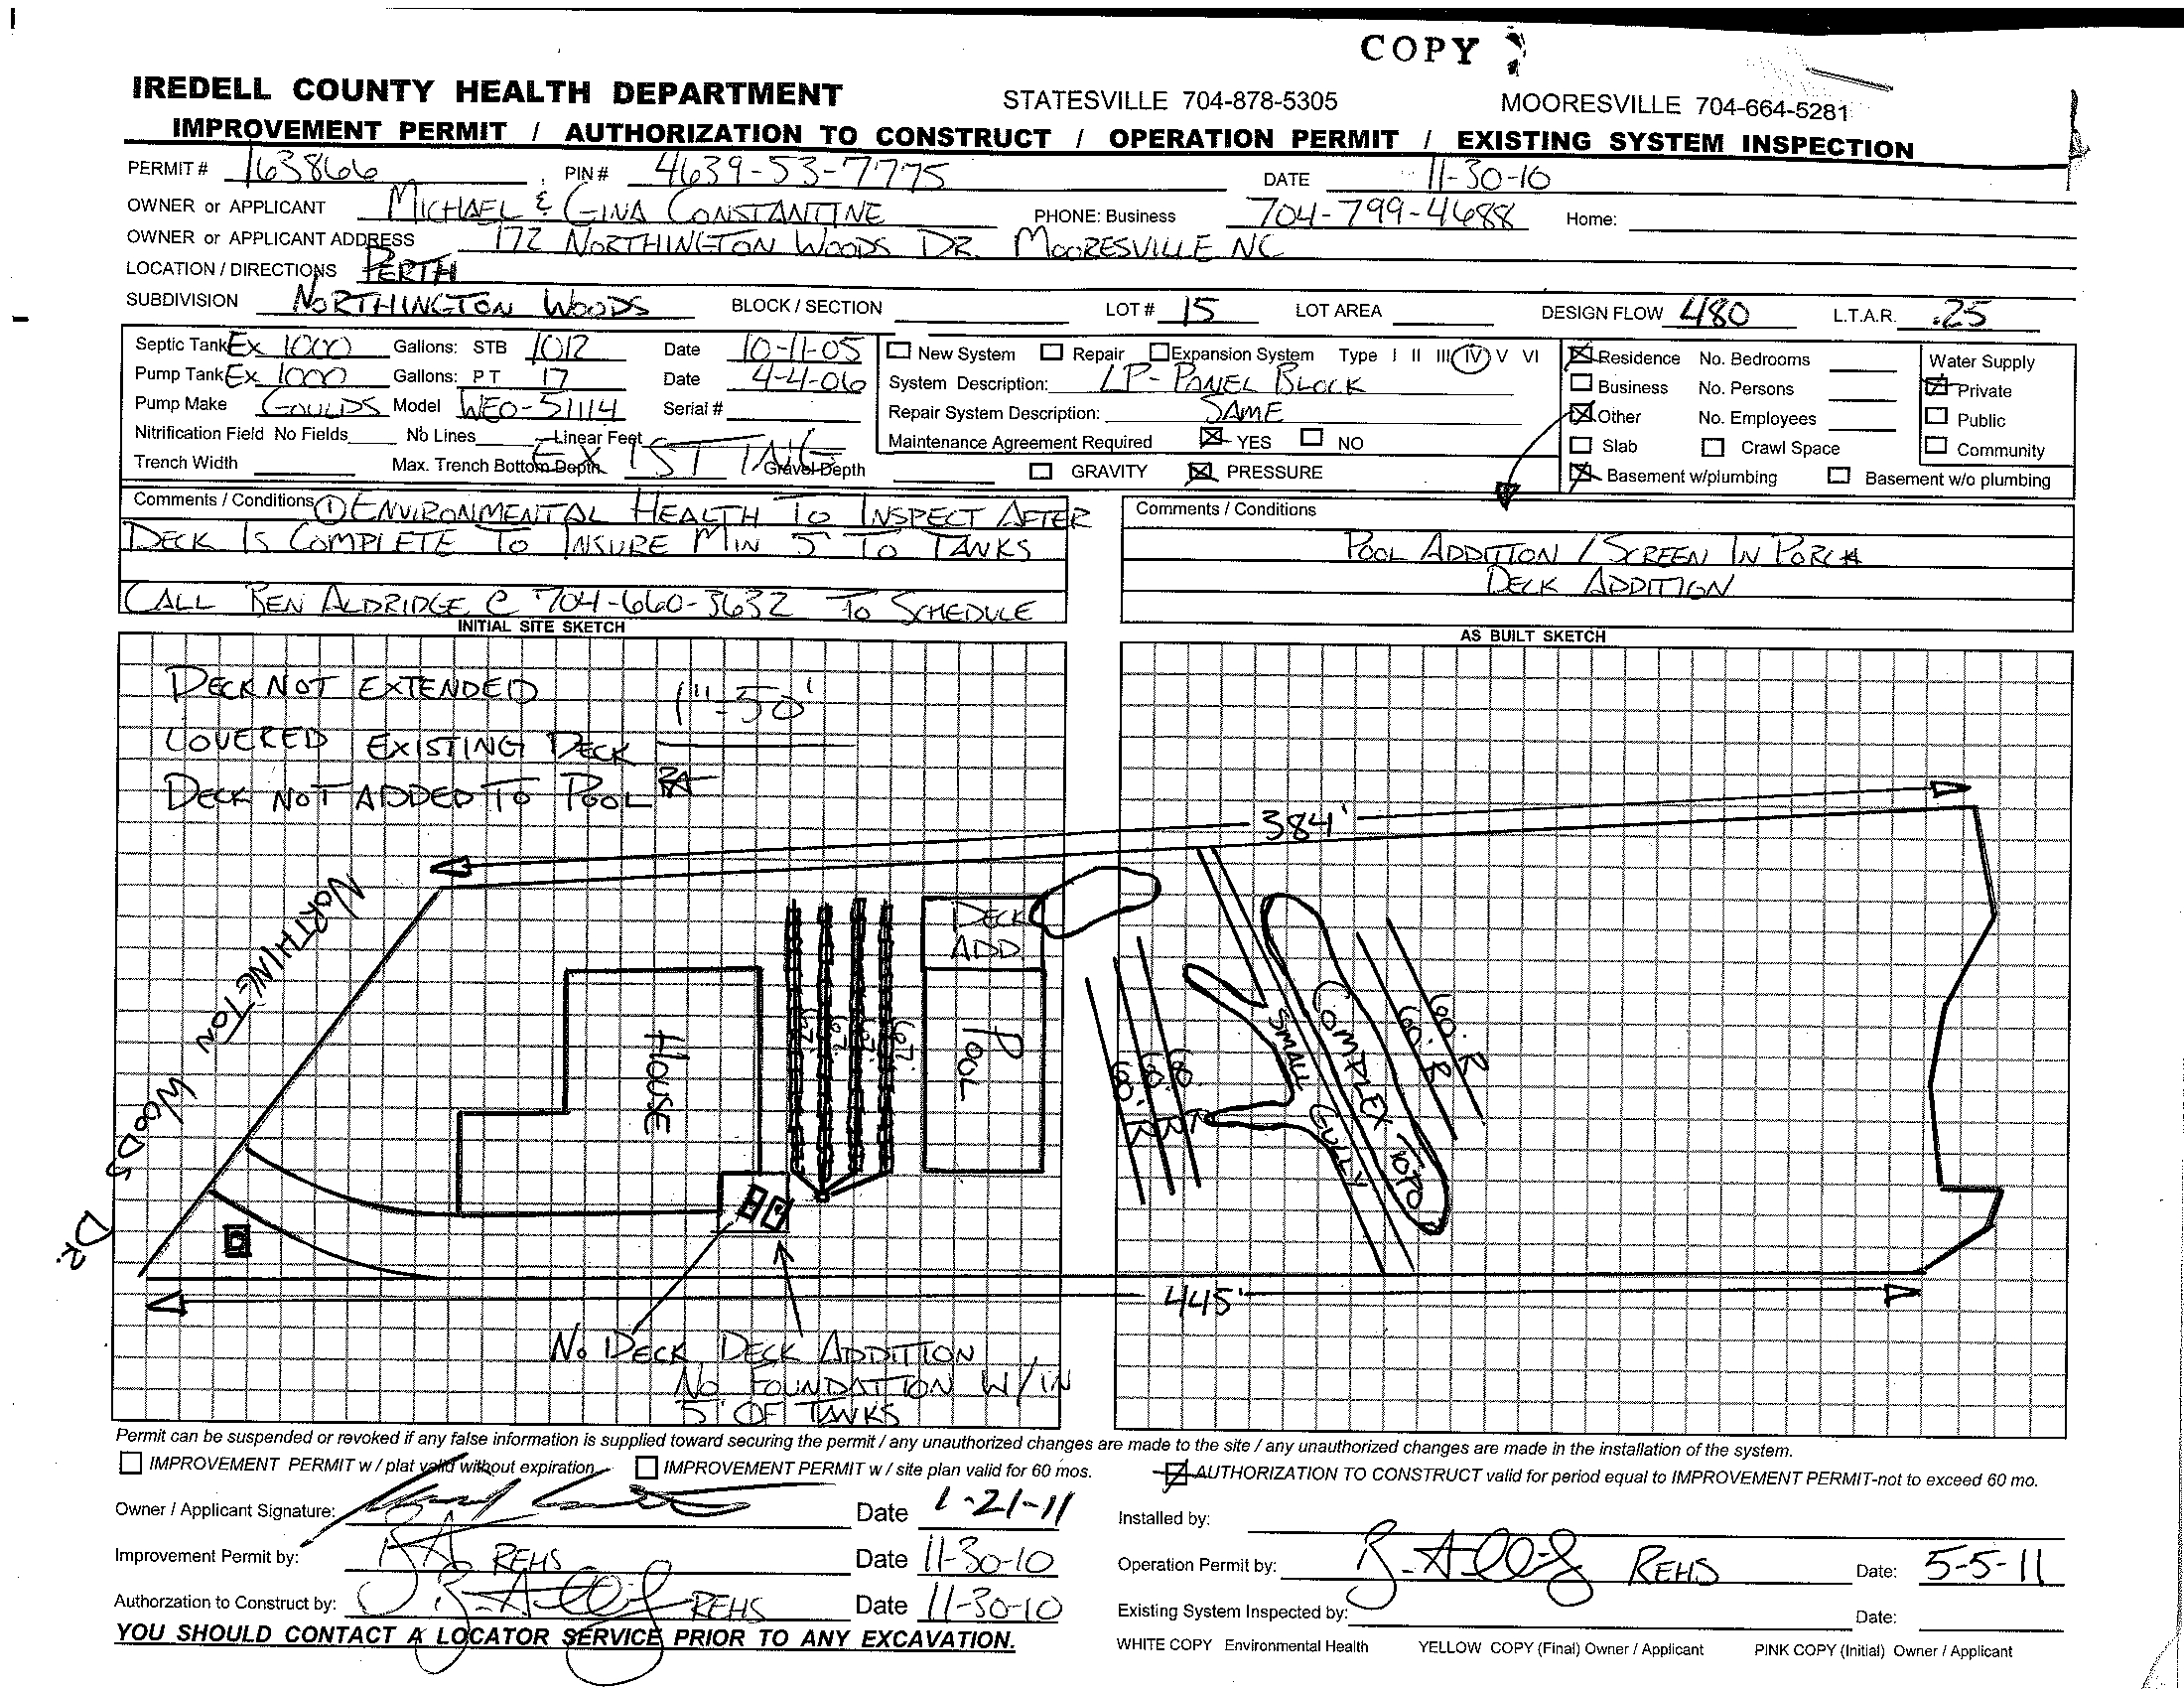 COPY
IREDELL COUNTY HEALTH DEPARTMENT STATESVILLE 704-878-5305 MOORESVILLE 704-664-5281
IMPROVEMENT PERMIT / AUTHORIZATION TO CONSTRUCT / OPERATION PERMIT / EXISTING SYSTEM INSPECTION
PERMIT # 163866 PIN # 4639-53-7775 DATE 11-30-10
OWNER or APPLICANT MICHAEL & GINA CONSTANTINE PHONE: Business 704-799-4688 Home:
OWNER or APPLICANT ADDRESS 172 NORTHINGTON WOODS DR. MOORESVILLE NC
LOCATION / DIRECTIONS PERTH
SUBDIVISION NORTHINGTON WOODS BLOCK / SECTION LOT # 15 LOT AREA DESIGN FLOW 480 L.T.A.R. .25
Septic Tank EX 1000 Gallons: STB 1012 Date 10-11-05
Pump Tank EX 1000 Gallons: PT 17 Date 4-4-06
Pump Make GOULDS Model WEO-51114 Serial #
Nitrification Field No Fields No Lines Linear Feet
EXISTING
Trench Width Max. Trench Bottom Depth Gravel Depth
New System Repair Expansion System Type I II III IV V VI
System Description: LP-PANEL BLOCK
Repair System Description: SAME
Maintenance Agreement Required YES NO
GRAVITY PRESSURE
Residence No. Bedrooms
Business No. Persons
Other No. Employees
Slab Crawl Space
Basement w/plumbing Basement w/o plumbing
Water Supply
Private
Public
Community
Comments / Conditions ① ENVIRONMENTAL HEALTH TO INSPECT AFTER
DECK IS COMPLETE TO INSURE MIN 5' TO TANKS
CALL BEN ALDRIDGE @ 704-660-3632 TO SCHEDULE
Comments / Conditions
POOL ADDITION / SCREEN IN PORCH
DECK ADDITION
INITIAL SITE SKETCH
AS BUILT SKETCH
DECK NOT EXTENDED
1"=50'
COVERED EXISTING DECK
DECK NOT ADDED TO POOL BA
384'
NORTHINGTON WOODS DR.
HOUSE
67'
67'
67'
67'
DECK
ADD.
POOL
60' R
60' R
60' R
SMALL GULLY
COMPLEX TOPO
60' R
60' R
445'
NO DECK, DECK ADDITION
NO FOUNDATION W/IN
5' OF TANKS
Permit can be suspended or revoked if any false information is supplied toward securing the permit / any unauthorized changes are made to the site / any unauthorized changes are made in the installation of the system.
IMPROVEMENT PERMIT w / plat valid without expiration IMPROVEMENT PERMIT w / site plan valid for 60 mos. AUTHORIZATION TO CONSTRUCT valid for period equal to IMPROVEMENT PERMIT-not to exceed 60 mo.
Owner / Applicant Signature: Date 1-21-11
Installed by:
Improvement Permit by: BA REHS Date 11-30-10
Operation Permit by: REHS Date: 5-5-11
Authorzation to Construct by: REHS Date 11-30-10
Existing System Inspected by: Date:
YOU SHOULD CONTACT A LOCATOR SERVICE PRIOR TO ANY EXCAVATION.
WHITE COPY Environmental Health YELLOW COPY (Final) Owner / Applicant PINK COPY (Initial) Owner / Applicant